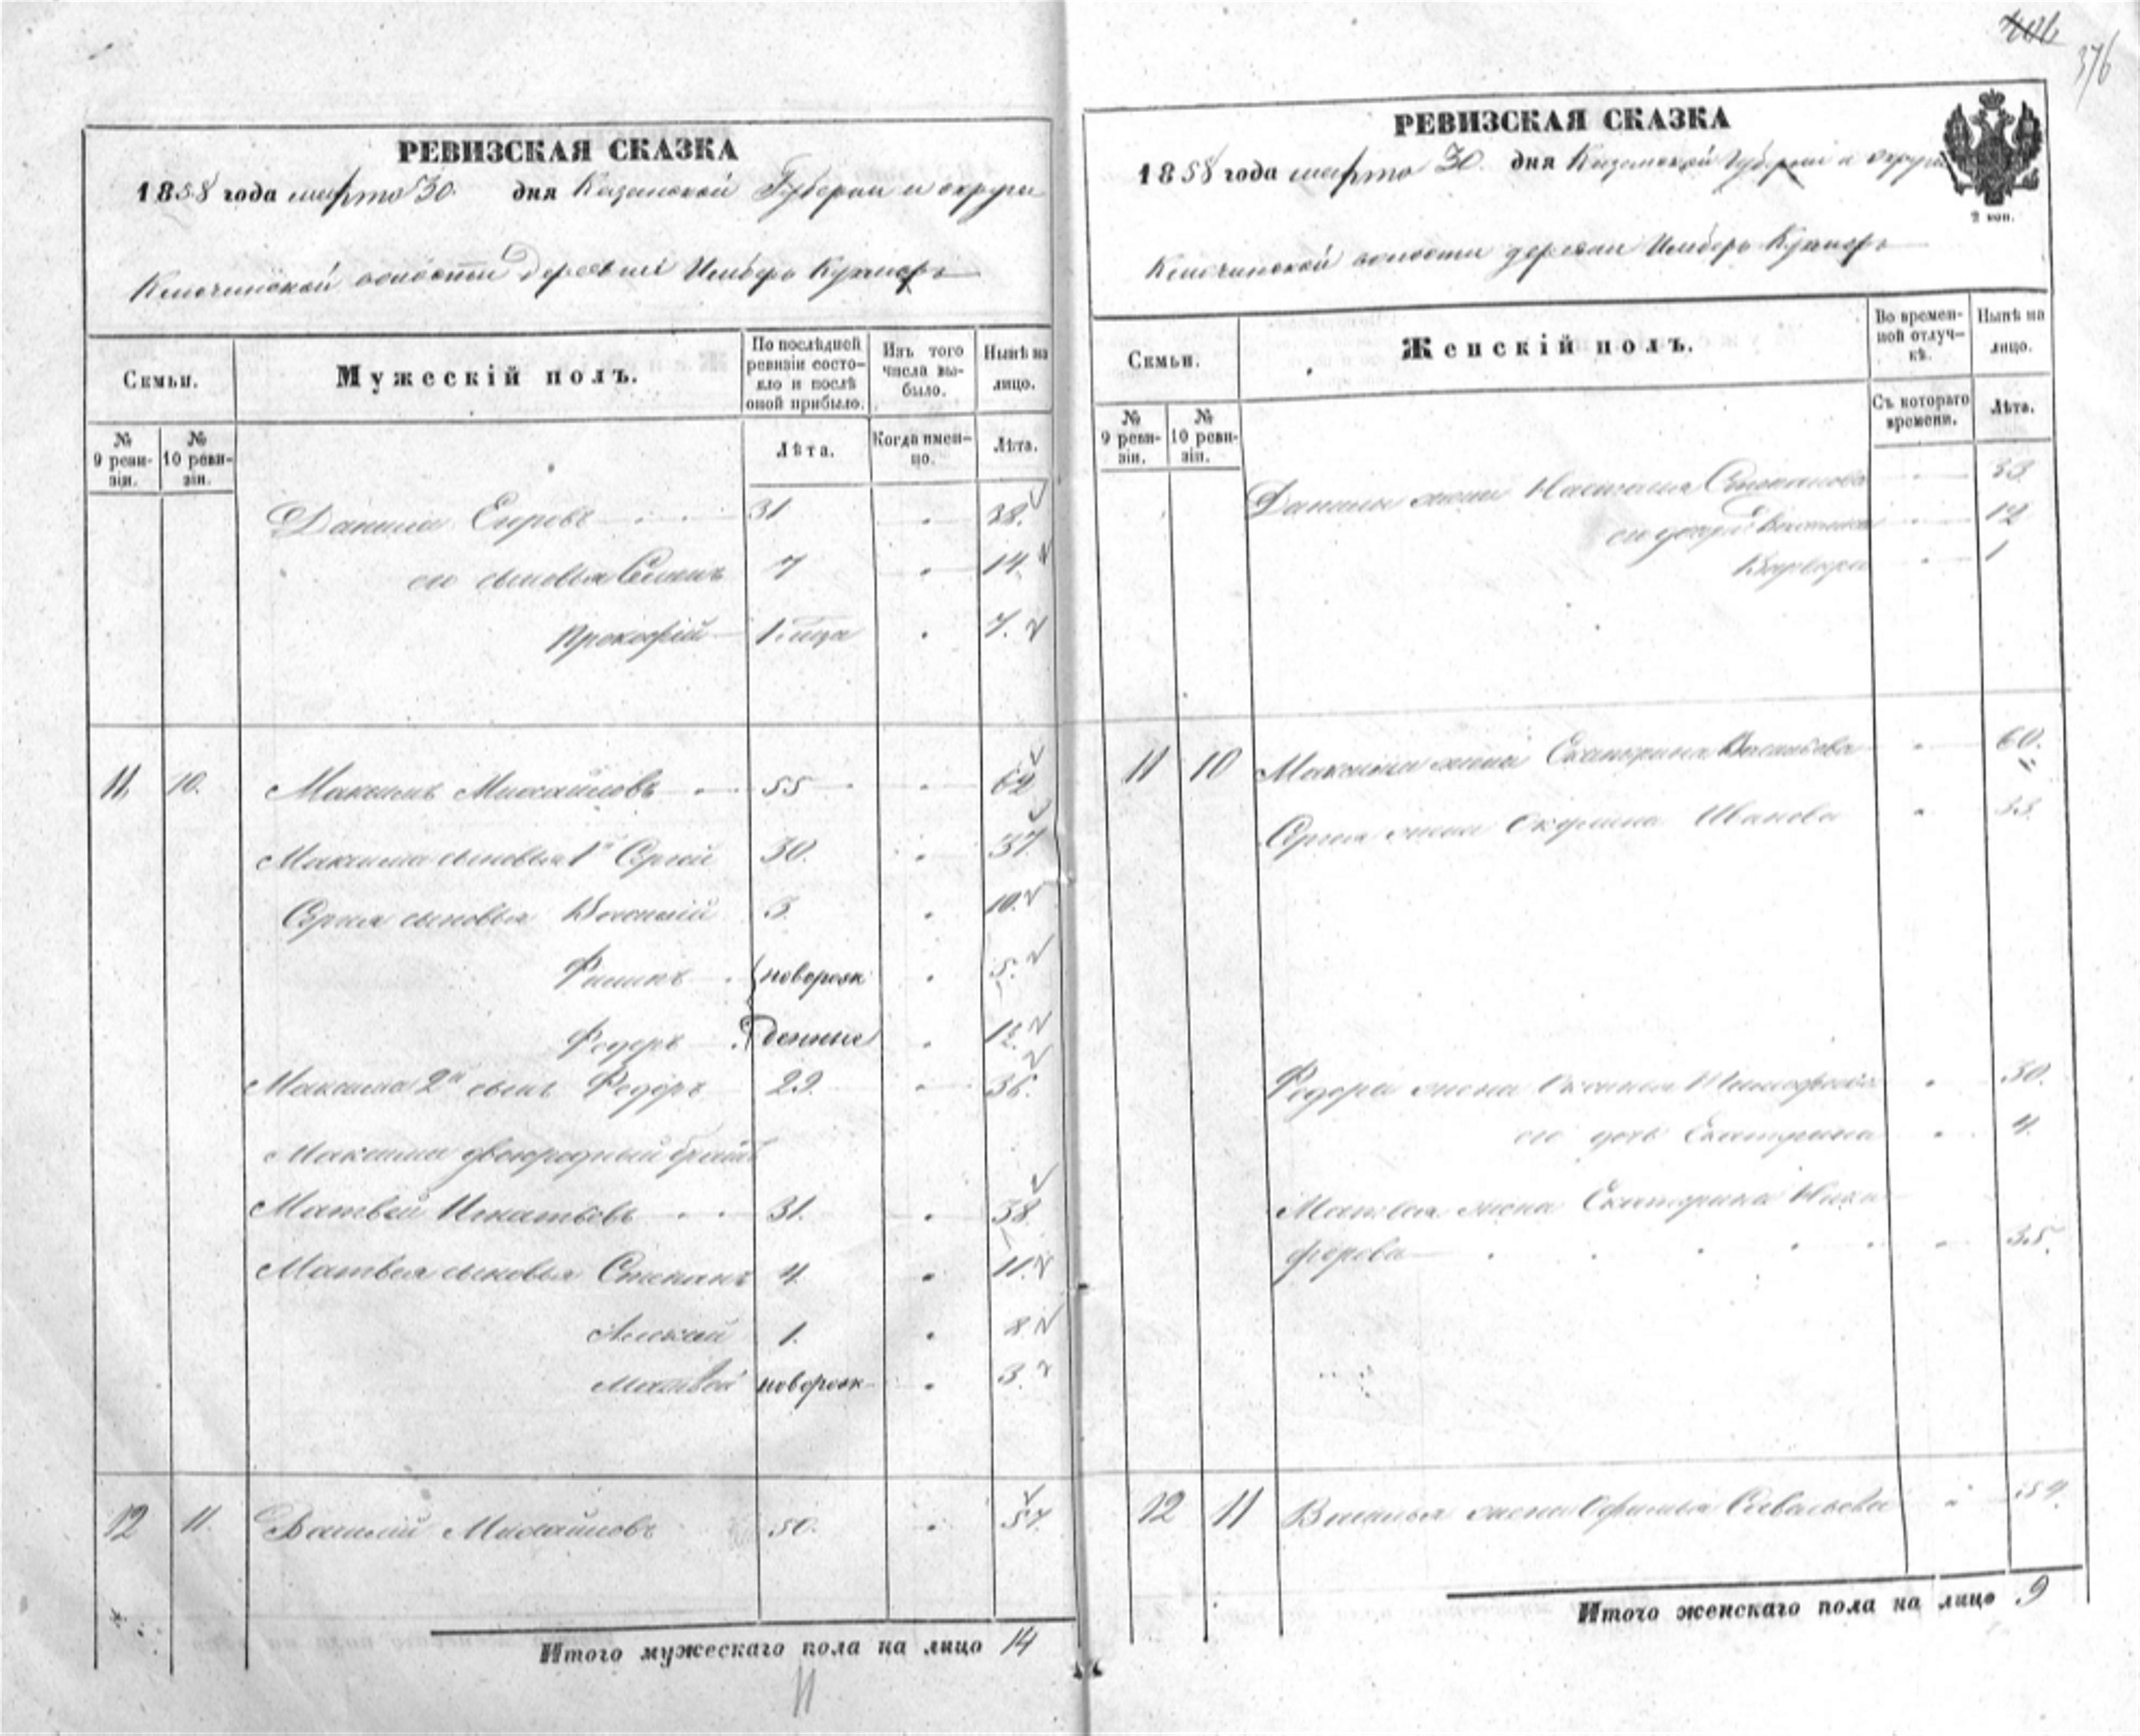 406
376
РЕВИЗСКАЯ СКАЗКА
1858 года марта 30 дня Казанской Губернии и округи
волости деревни Кужнеръ
Семьи.
Мужескій полъ.
По послѣдней ревизіи состояло и послѣ оной прибыло.
Изъ того числа выбыло.
Нынѣ на лицо.
№ 9 ревизіи.
№ 10 ревизіи.
Лѣта.
Когда именно.
Лѣта.
Данила Егоровъ 31 38.
его сыновья Семенъ 7 14.
Прокофій 7.
11. 10. Максимъ Михайловъ 55 62
Максима сыновья 1й Сергей 30. 37.
Сергея сыновья Василий 3. 10.
Филипъ новорож 5.
Федоръ денные
Максима 2й сынъ Федоръ 29. 36.
Максима двоюродный братъ
Матвей Игнатьевъ 31. 38.
Матвея сыновья Степанъ 4. 11.
Алексей 1. 8.
Матвей новорож 3.
12 11. Василий Михайловъ 50. 57.
Итого мужескаго пола на лицо 14
11
РЕВИЗСКАЯ СКАЗКА
1858 года марта 30. дня Казанской Губернии и округи
2 коп.
волости деревни Кужнеръ
Семьи.
Женскій полъ.
Во временной отлучкѣ.
Нынѣ на лицо.
№ 9 ревизіи.
№ 10 ревизіи.
Съ котораго времени.
Лѣта.
Данилы жена Настасья Степанова 33
его дочери 12
Варвара 1
11 10 Максима жена Екатерина Васильева 60.
Сергея жена Окулина Иванова 33.
Федора жена Оксинья 30.
его дочь Екатерина 4.
Матвея жена Екатерина Ники
форова 35.
12 11 Василья жена Офимья Савельева
Итого женскаго пола на лицо 9